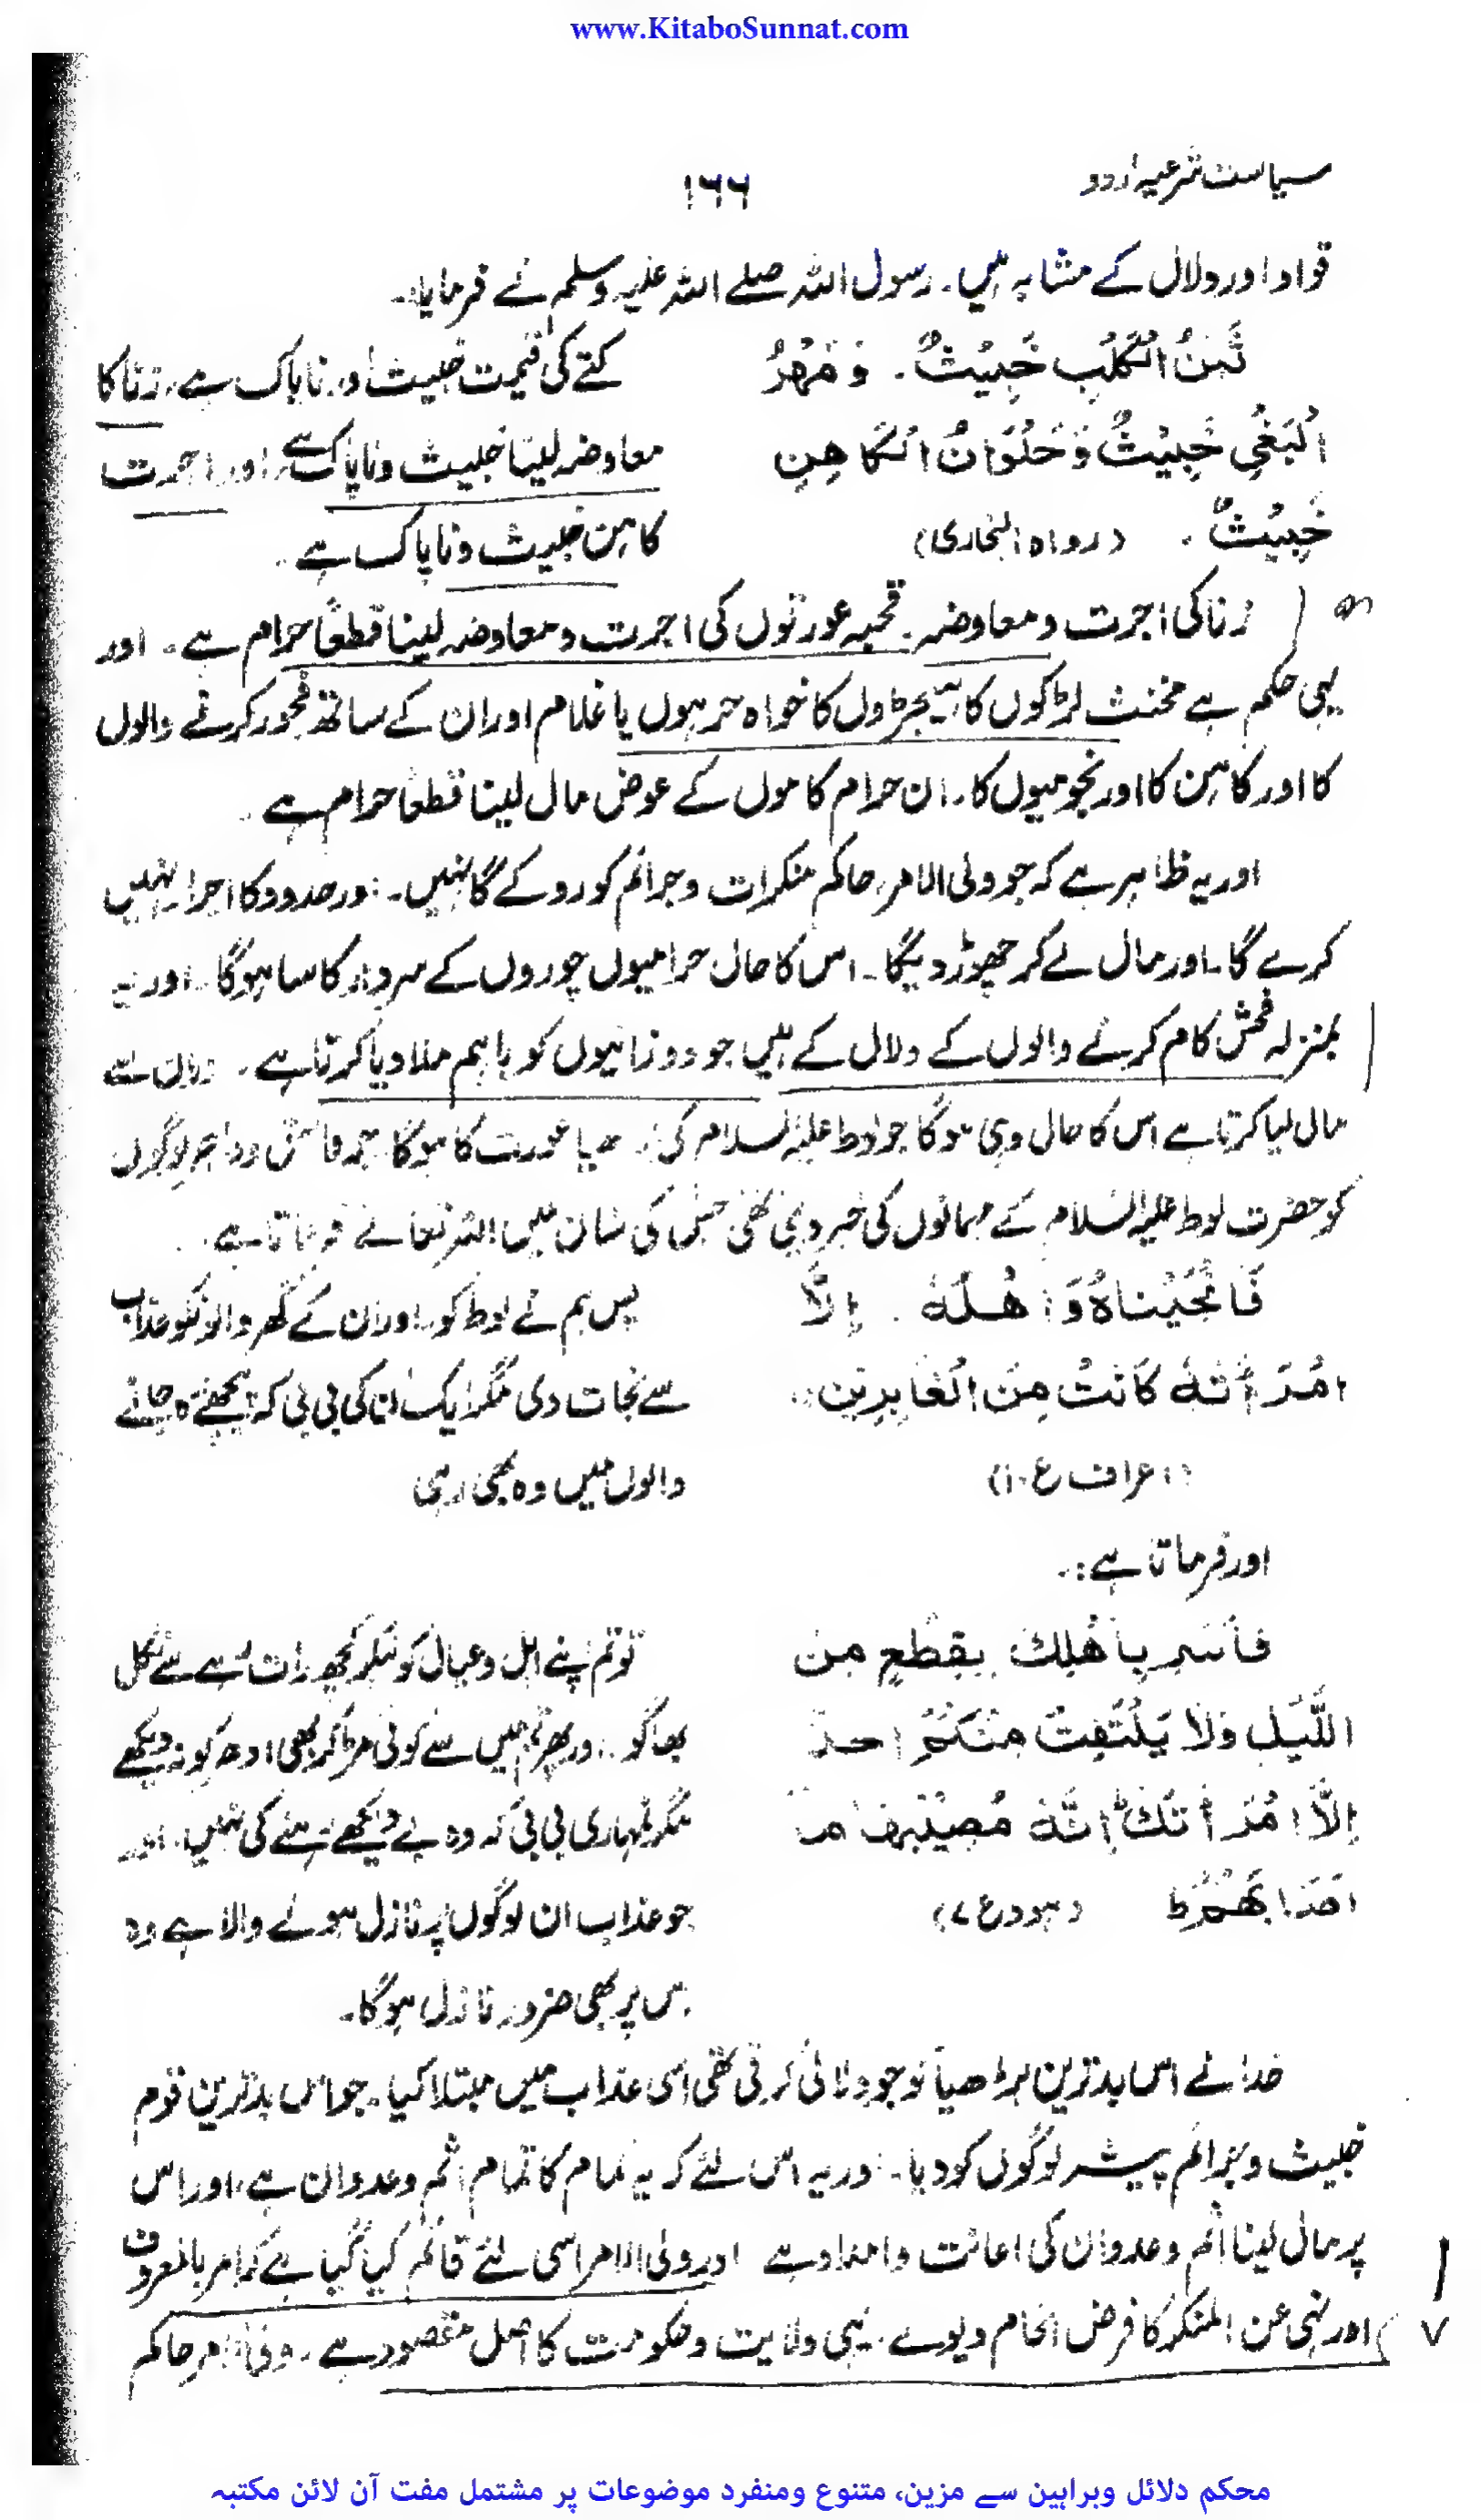 www.KitaboSunnat.com
سیاست شرعیہ اردو
۱۶۶
قواد اور دلال کے مشابہ ہیں۔ رسول اللہ صلے اللہ علیہ وسلم نے فرمایا۔
ثَمَنُ الْکَلْبِ خَبِیْثٌ۔ وَمَهْرُ
الْبَغْیِ خَبِیْثٌ وَحُلْوَانُ الْکَاهِنِ
خَبِیْثٌ۔ (رواہ البخاری)
کتے کی قیمت خبیث اور ناپاک ہے، زنا کا
معاوضہ لینا خبیث وناپاک ہے، اور اجرت
کاہن خبیث وناپاک ہے۔
زنا کی اجرت ومعاوضہ۔ قحبہ عورتوں کی اجرت ومعاوضہ لینا قطعاً حرام ہے۔ اور
یہی حکم ہے مخنث لڑکوں کا ہیجڑاوں کا خواہ حر ہوں یا غلام اور ان کے ساتھ فجور کرنے والوں
کا اور کاہن کا اور نجومیوں کا۔ ان حرام کاموں کے عوض مال لینا قطعاً حرام ہے۔
اور یہ ظاہر ہے کہ جو ولی الامر، حاکم منکرات وجرائم کو روکے گا نہیں۔ اور حدود کا اجراء نہیں
کرے گا۔ اور مال لے کر چھوڑ دیگا۔ اس کا حال حرامیوں چوروں کے سردار کا سا ہوگا۔ اور یہ
بمنزلہ فحش کام کرنے والوں کے دلال کے ہیں جو دو زانیوں کو باہم ملا دیا کرتا ہے۔
مال لیا کرتا ہے اس کا حال وہی ہوگا جو لوط علیہ السلام کی عورت کا ہوگا جو فاسق لوگوں
کو حضرت لوط علیہ السلام کے مہمانوں کی خبر دیتی تھی جس کی شان میں اللہ تعالے فرماتا ہے۔
فَاَنْجَیْنَاهُ وَاَهْلَهٗ۔ اِلَّا
امْرَأَتَهٗ کَانَتْ مِنَ الْغَابِرِیْنَ۔
(اعراف ع ۱۰)
پس ہم نے لوط کو۔ اور ان کے گھر والونکو عذاب
سے نجات دی مگر ایک ان کی بی بی کہ پیچھے رہ جانے
والوں میں وہ بھی رہی
اور فرماتا ہے:۔
فَاَسْرِ بِاَهْلِکَ بِقِطْعٍ مِّنَ
اللَّیْلِ وَلَا یَلْتَفِتْ مِنْکُمْ اَحَدٌ
اِلَّا امْرَأَتَکَ اِنَّهٗ مُصِیْبُهَا مَا
اَصَابَهُمْ ط (ہود ع ۷)
تو تم اپنے اہل وعیال کو لیکر کچھ رات رہے سے نکل
بھاگو۔ اور پھر تم میں سے کوئی مڑ کر بھی ادھر کو نہ دیکھے
مگر تمہاری بی بی کہ وہ بے دیکھے رہنے کی نہیں۔ اور
جو عذاب ان لوگوں پر نازل ہونے والا ہے وہ
اس پر بھی ضرور نازل ہوگا۔
خدا نے اس بدترین بڑھیا کو جو دلالی کرتی تھی اسی عذاب میں مبتلا کیا۔ جو اس بدترین قوم
خبیث وجرائم پیشہ لوگوں کو دیا۔ اور یہ اس لئے کہ یہ تمام کا تمام اثم وعدوان ہے، اور اس
پر مال لینا اثم وعدوان کی اعانت وامداد ہے اور ولی الامر اسی لئے قائم کیا گیا ہے کہ امر بالمعروف
اور نہی عن المنکر کا فرض انجام دیوے۔ یہی ولایت وحکومت کا اصل مقصود ہے۔ حاکم
محکم دلائل وبراہین سے مزین، متنوع ومنفرد موضوعات پر مشتمل مفت آن لائن مکتبہ